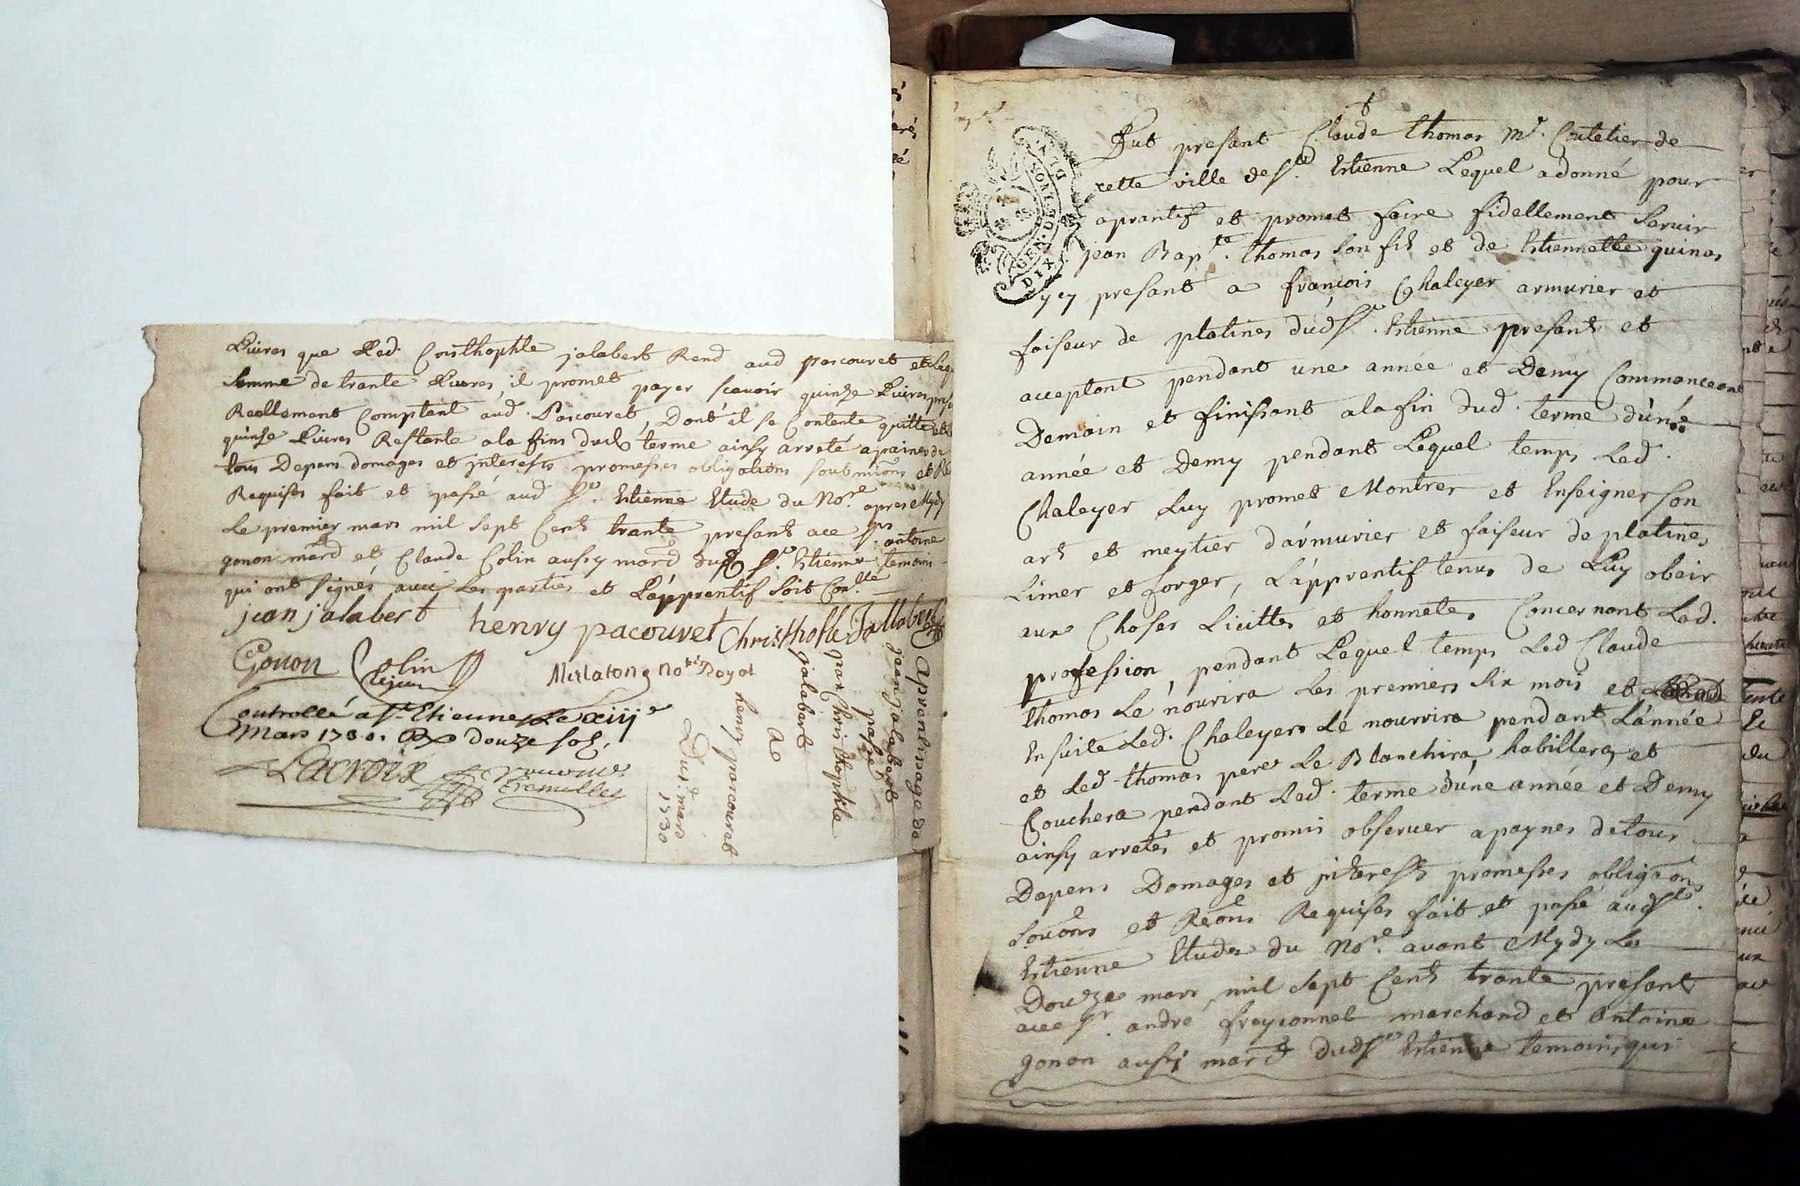 Livres que Led. Cristhophle jalabert Rend aud pascouret et Laq
somme de trante Livres il promet payer scavoir quinze Livres pres
Reellement Comptent aud. Pascouret, Dont il se Contente quitte et
quinse Livres Restante a la fins dud. terme ainsy arreté apaines de
tous Depens domages et interests promesses obligations soubmions et
Requises fait et passé aud St. Estienne Etude du Nore. apres Mydy
Le premier mars mil sept Cent trante presant ace sr. antoine
gonon mard et Claude Colin aussy mard dud St. Estienne temoins
qui ont signés avec Les parties et L'apprentif soit Conlé.
jean jalabert henry pacouret Christhofle Jallabert
Gonon Colin
Lejeune
Merlaton Nore Royal
Controllé a St. Etienne Le xiii
Mars 1730. R douze sols,
Lacroix
Tremolles
Aprentisage de
jean jalabert
passé
par Christhophle
jalabert
a
henry pascouret
Du 1r. mars
1730
GEN. DE LYON
DIX
Fut presant Claude thomas Me. Coutelier de
cette ville de St. Estienne Lequel a donné pour
aprantif et promet faire fidellement Servir
jean Bapte. thomas son fils et de Estiennette quinas
y ey presant a françois Chaleyer armurier et
faiseur de platines dud St. Estienne presant et
acceptant pendant une année et Demy Commanceant
Demain et finissant a la fin dud. terme d'une
année et Demy pendant Lequel temps Led.
Chaleyer Luy promet Montrer et Enseigner son
art et meytier d'armurier et faiseur de platines
Limer et forger, L'apprentif tenu de Luy obeir
aux Choses Licittes et honnetes Concernant Lad.
profession, pendant Lequel temps Led Claude
thomas Le nourira Les premiers six mois et
Ensuite Led. Chaleyer Le nourrira pendant L'année
et Led. thomas pere Le Blanchira, habillera et
Couchera pendant Led. terme d'une année et Demy
ainsy arretés et promis observer a paynes de tous
Depens Domages et interests promesses obligaons
souons et Reons Requises fait et passé aud St.
Estienne Etude du Nore. avant Mydy Le
Douze mars mil sept Cent trante presant
ace sr. andré freyconnet marchand et Antoine
gonon aussi marcd dud St. Estienne temoins qui